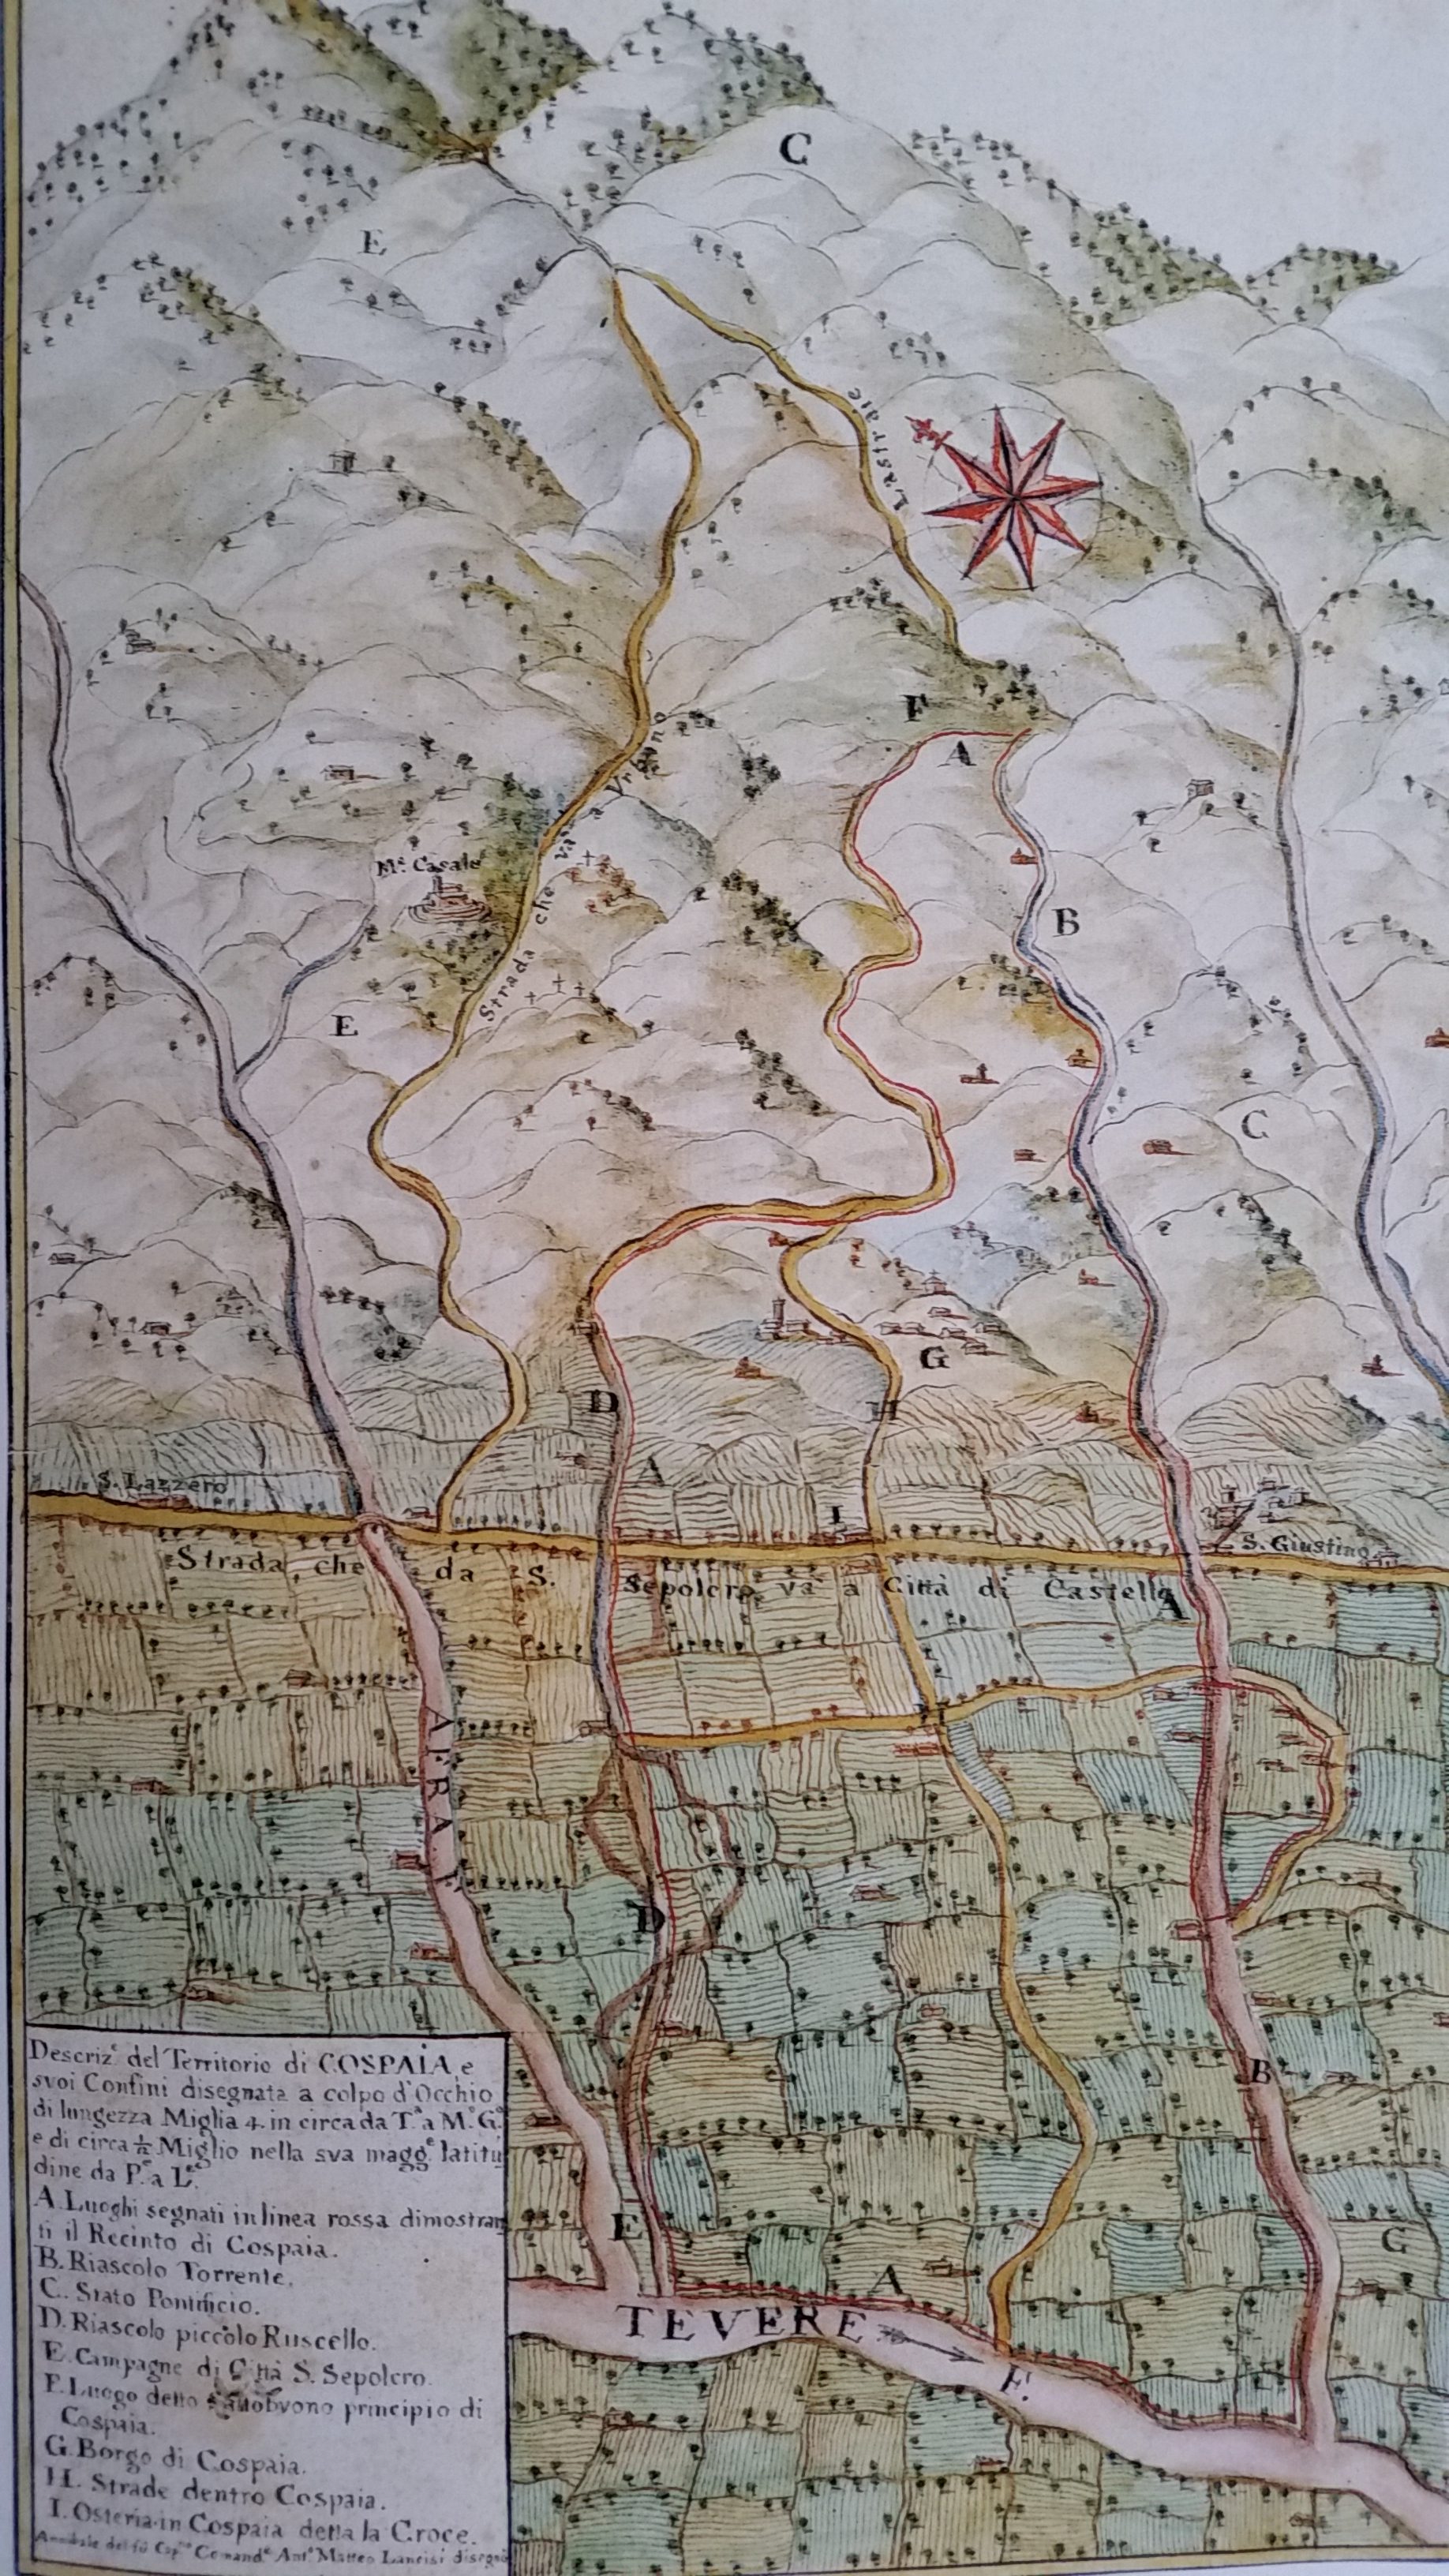 C
E
Lastraie
F
A
Strada che và a Vrbino
Mᵉ Casale
B
E
C
G
D
H
A
I
S. Lazzero
S. Giustino
Strada, che da S. Sepolcro và a Città di Castello
A
AFRA. T.
D
B
E
G
A
TEVERE
E.
Descrizᵉ del Territorio di COSPAIA e
svoi Confini disegnata a colpo d'Occhio
di lungezza Miglia 4. in circa da Tᵃ a Mᵒ Gᵒ
e di circa ½ Miglio nella sva maggᵉ latitu
dine da Pᵉ a Lᵉ
A. Luoghi segnati in linea rossa dimostran
ti il Recinto di Cospaia.
B. Riascolo Torrente.
C. Stato Pontificio.
D. Riascolo piccolo Ruscello.
E. Campagne di Città S. Sepolcro.
F. Luogo detto principio di
Cospaia.
G. Borgo di Cospaia.
H. Strade dentro Cospaia.
I. Osteria in Cospaia detta la Croce.
Annibale del fù Comandᵉ Antᵒ Matteo Lancisi disegnò